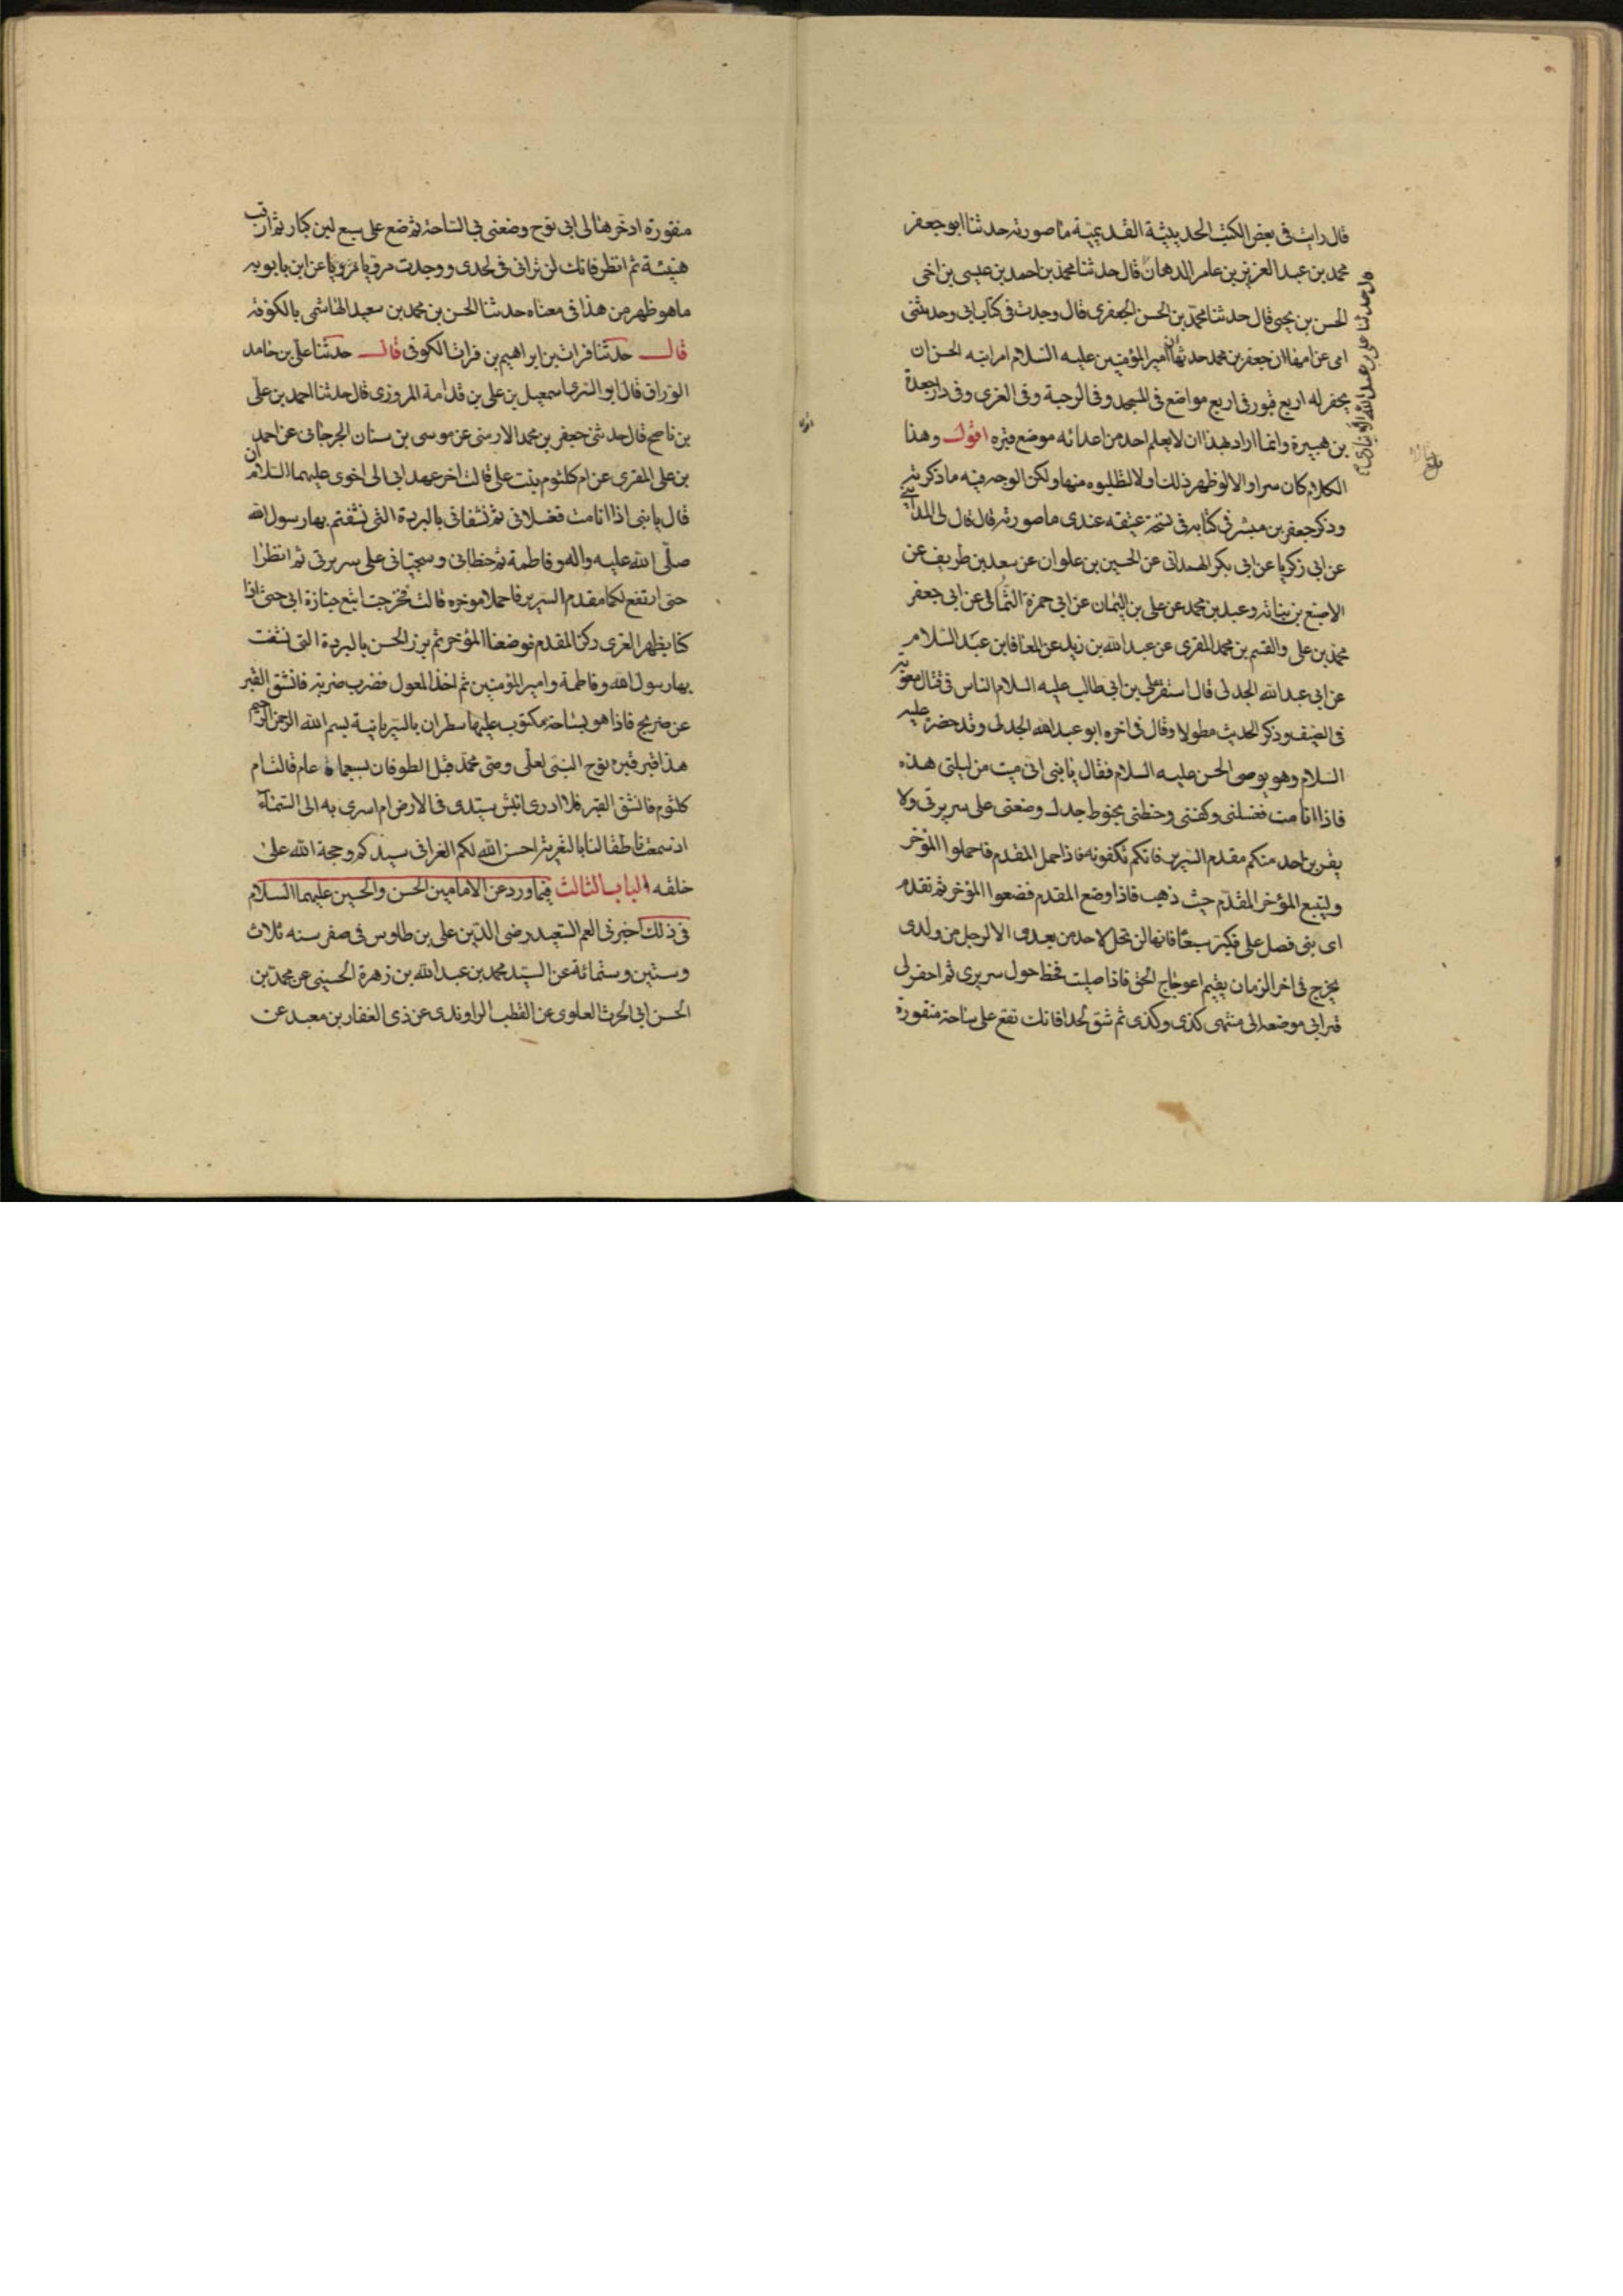 قال رايت فى بعض الكتب الحديثية القديمية ما صورته حدثنا ابو جعفر
محمد بن عبد العزيز بن عامر الدهان قال حدثنا محمد بن احمد بن عيسى بن اخى
الحسن بن يحيى قال حدثنا محمد بن الحسن الجعفرى قال وجدت فى كتاب ابى وحدثتنى
امى عن امها ان جعفر بن محمد حدثها ان امير المؤمنين عليه السلام امر ابنه الحسن ان
يحفر له اربع قبور فى اربع مواضع فى المسجد وفى الرحبة وفى الغرى وفى دار جعدة
بن هبيرة وانما اراد بهذا ان لا يعلم احد من اعدائه موضع قبره اقول وهذا
الكلام كان سرا والا لو ظهر ذلك اولا لتطلبوه منها ولكن الوجه فيه ما ذكرته
وذكر جعفر بن مبشر فى كتابه فى نسخة عتيقة عندى ما صورته قال قال لى المداينى
عن ابى زكريا عن ابى بكر الهمدانى عن الحسين بن علوان عن سعد بن طريف عن
الاصبغ بن نباته وعبد بن محمد عن على بن اليمان عن ابى حمزة الثمالى عن ابى جعفر
محمد بن على والقسم بن محمد المقرى عن عبد الله بن زيد عن المعافا بن عبد السلام
عن ابى عبد الله الجدلى قال استنفر على بن ابى طالب عليه السلام الناس فى قتال معوية
فى الصيف وذكر الحديث مطولا وقال فى اخره ابو عبد الله الجدلى وقد حضر عليه
السلام وهو يوصى الحسن عليه السلام فقال يا بنى انى ميت من ليلتى هذه
فاذا انا مت فغسلنى وكفنى وحنطنى بحنوط جدك وضعنى على سريرى ولا
يقربن احد منكم مقدم السرير فانكم تكفونه فاذا حمل المقدم فاحملوا المؤخر
وليتبع المؤخر المقدم حيث ذهب فاذا وضع المقدم فضعوا المؤخر ثم تقدم
اى بنى فصل على فكبر سبعا فانها لن تحل لاحد من بعدى الا لرجل من ولدى
يخرج فى اخر الزمان يقيم اعوجاج الحق فاذا صليت فخط حول سريرى ثم احفر لى
قبرا فى موضعه الى منتهى كذى وكذى ثم شق لحدا فانك تقع على ساجة منقورة
قال حدثنا على بن عبد الله الانبارى
منقورة ادخرها لى ابى نوح وضعنى فى الساجة ثم ضع على سبع لبن كبار ثم ارقب
هنيئة ثم انظر فانك لن ترانى فى لحدى ووجدت مرويا مرويا عن ابن بابويه
ما هو ظهر من هذا فى معناه حدثنا الحسن بن محمد بن سعيد الهاشمى بالكوفة
قال حدثنا فرات بن ابراهيم بن فرات الكوفى قال حدثنا على بن حامد
الوراق قال ابو السرى اسمعيل بن على بن قدامة المروزى قال حدثنا احمد بن على
بن ناصح قال حدثنى جعفر بن محمد الارمنى عن موسى بن سنان الجرجانى عن احمد
بن على المقرى عن ام كلثوم بنت على قالت اخر عهد ابى الى اخوى عليهما السلام ان
قال يا بنى اذا انا مت فغسلانى ثم نشفانى بالبردة التى نشفتم بها رسول الله
صلى الله عليه واله وفاطمة ثم حنطانى وسجيانى على سريرى ثم انتظرا
حتى ارتفع لكما مقدم السرير فاحملا موخره قالت فخرجت اتبع جنازة ابى حتى اذا
كنا بظهر الغرى ركن المقدم فوضعنا المؤخر ثم برز الحسن بالبردة التى نشفت
بها رسول الله وفاطمة وامير المؤمنين ثم اخذ المعول فضرب ضربة فانشق القبر
عن ضريح فاذا هو بساجة مكتوب عليها سطران بالسريانية بسم الله الرحمن الرحيم
هذا قبر قبره نوح النبى لعلى وصى محمد قبل الطوفان بسبعماة عام قالت ام
كلثوم فانشق القبر فلا ادرى انبش سيدى فى الارض ام اسرى به الى السماء
اذ سمعت ناطقا لنا بالتعزية احسن الله لكم العزا فى سيدكم وحجة الله على
خلقه الباب الثالث فيما ورد عن الامامين الحسن والحسين عليهما السلام
فى ذلك اخبرنى العم السعيد رضى الدين على بن طاوس فى صفر سنه ثلاث
وستين وستمائة عن السيد محمد بن عبد الله بن زهرة الحسينى عن محمد بن
الحسن ابى الحرث العلوى عن القطب الراوندى عن ذى الفقار بن معبد عن